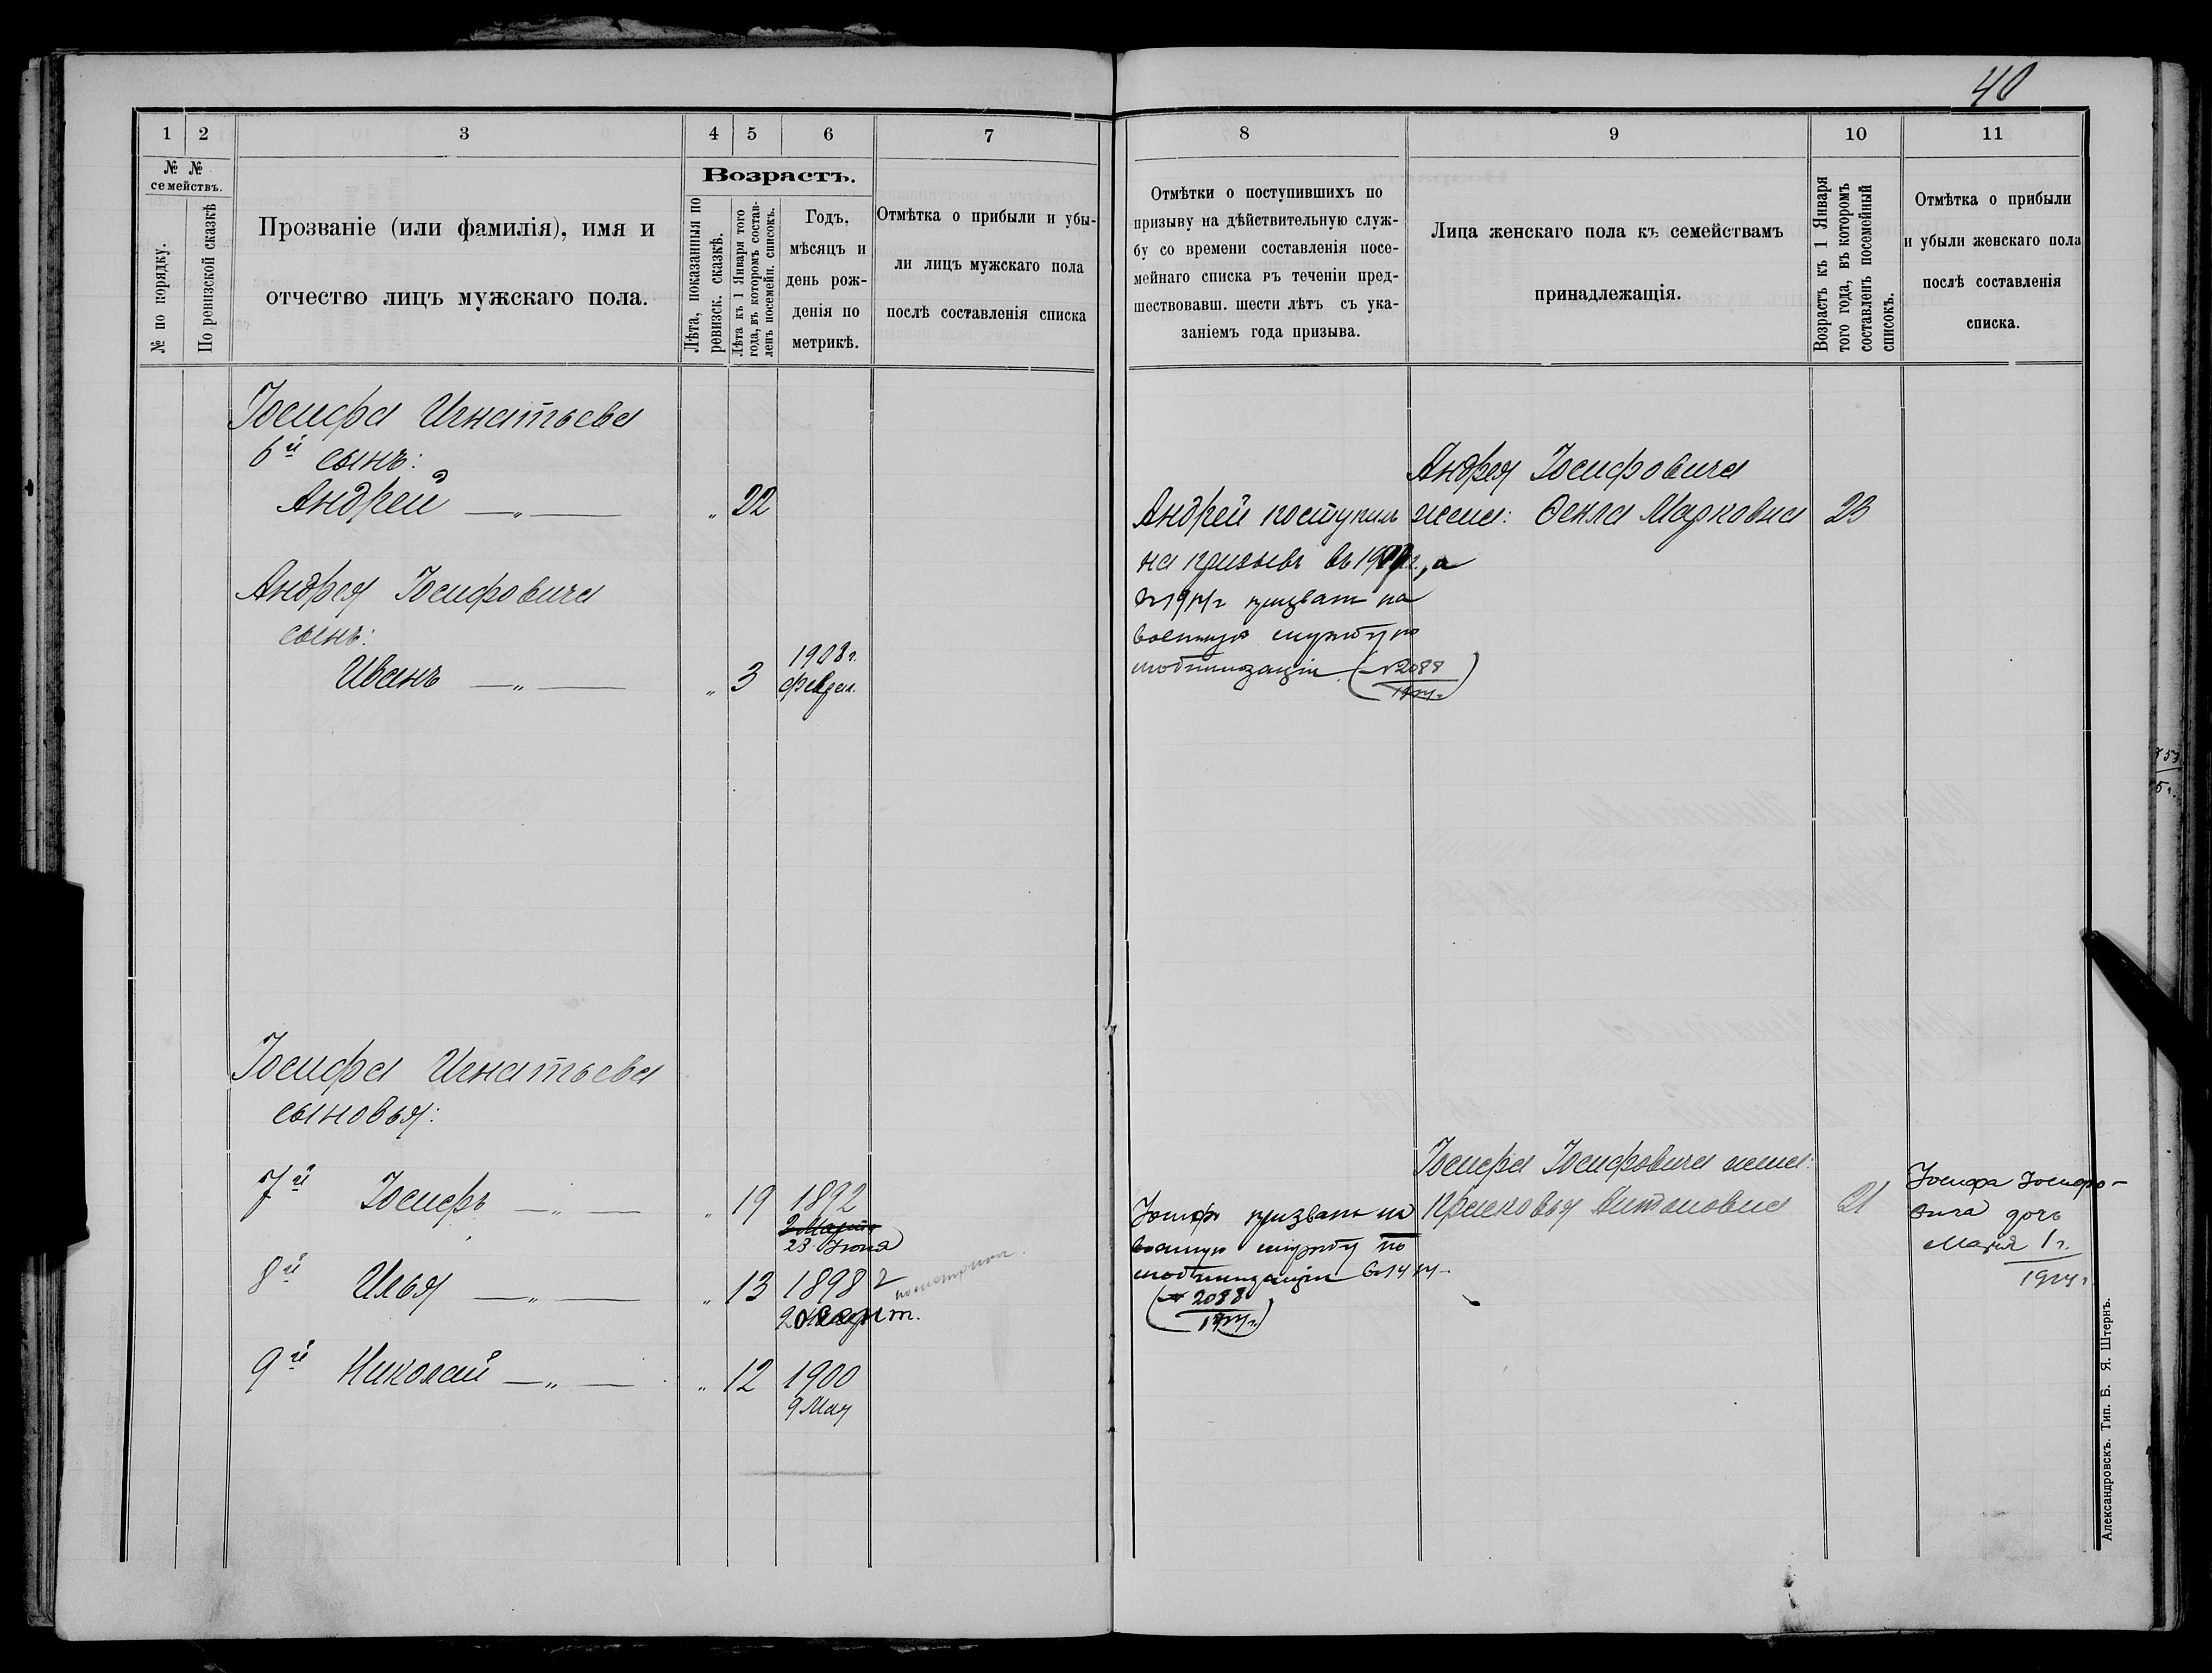 40
1 2 3 4 5 6 7
№ № семействъ.
№ по порядку.
По ревизской сказкѣ
Прозваніе (или фамилія), имя и
отчество лицъ мужскаго пола.
Возрастъ.
Лѣта, показанныя по
ревизск. сказкѣ.
Лѣта къ 1 Января того
года, въ которомъ состав-
ленъ посемейн. списокъ.
Годъ,
мѣсяцъ и
день рож-
денія по
метрикѣ.
Отмѣтка о прибыли и убы-
ли лицъ мужскаго пола
послѣ составленія списка
Іосифа Игнатьева
6й сынъ:
Андрей —„— „ 22
Андрея Іосифовича
сынъ:
Иванъ —„— „ 3 1908 г.
феврал.
Іосифа Игнатьева
сыновья:
7й Іосифъ —„— „ 19 1892
2 Марта
23 Іюня
8й Илья —„— „ 13 1898
20 Март.
9й Николай —„— „ 12 1900
9 Мая
8 9 10 11
Отмѣтки о поступившихъ по
призыву на дѣйствительную служ-
бу со времени составленія посе-
мейнаго списка въ теченіи пред-
шествовавш. шести лѣтъ съ ука-
заніемъ года призыва.
Лица женскаго пола къ семействамъ
принадлежащія.
Возрастъ къ 1 Января
того года, въ которомъ
составленъ посемейный
списокъ.
Отмѣтка о прибыли
и убыли женскаго пола
послѣ составленія
списка.
Андрея Іосифовича
жена: Ѳекла Марковна 23
Андрей поступилъ
на призывъ въ г., а
в 1914 г призван на
военную службу по
мобилизаціи (№ 2088
1914 г.)
Іосифа Іосифовича жена:
Прасковья Антоновна 21
Іосифъ призванъ на
военную службу по
мобилизаціи в 1914
(№ 2088
1914 г.)
Іосифа Іосифо-
вича дочь
Марія 1 г.
1914 г.
Александровскъ. Тип. Б. Я. Штернъ.